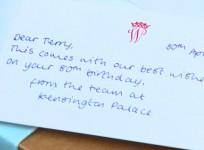 W
30th Apr
Dear Terry,
This comes with our best wishes
on your 80th birthday,
from the team at
Kensington Palace